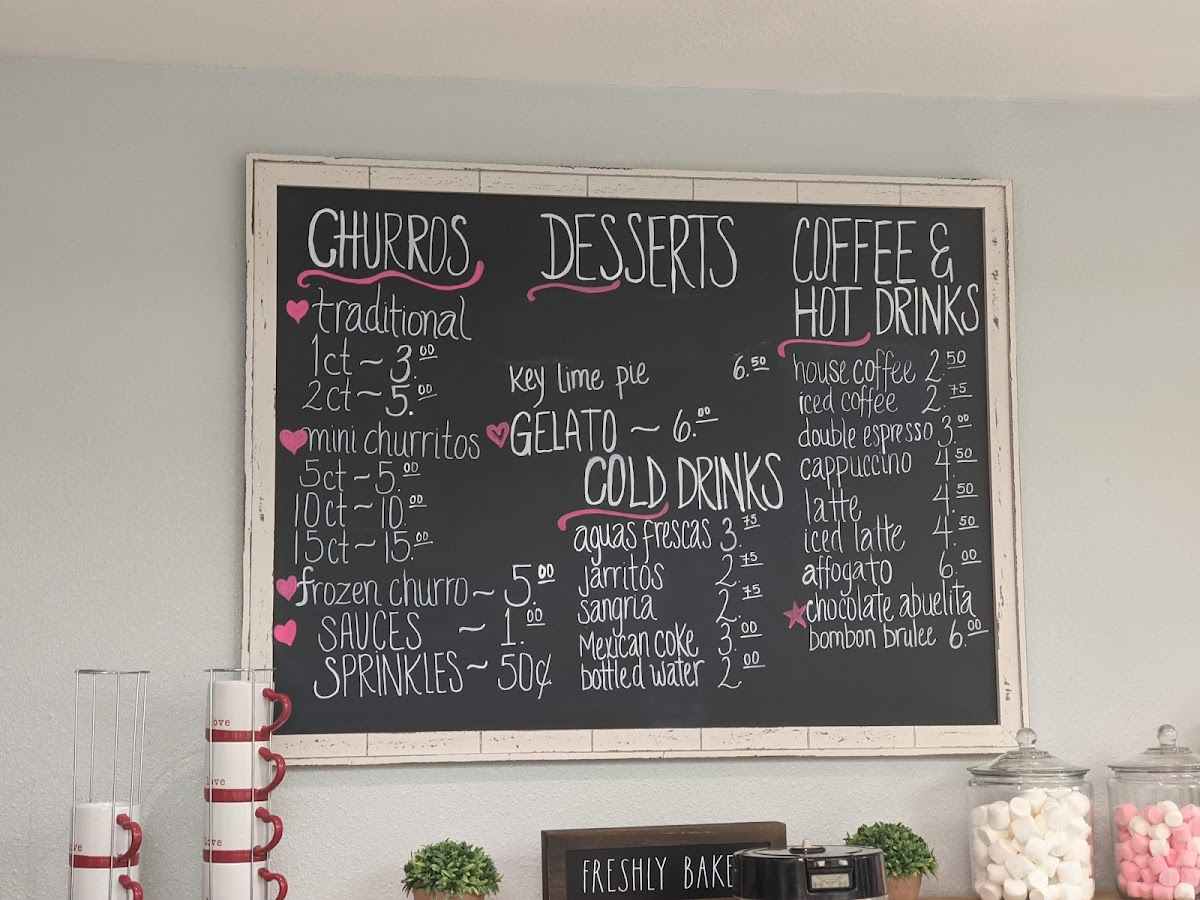 CHURROS
traditional
1ct ~ 3.00
2ct ~ 5.00
mini churritos
5ct ~ 5.00
10ct ~ 10.00
15ct ~ 15.00
frozen churro ~ 5.00
SAUCES ~ 1.00
SPRINKLES ~ 50¢
DESSERTS
key lime pie 6.50
GELATO ~ 6.00
COLD DRINKS
aguas frescas 3.75
jarritos 2.75
sangria 2.75
Mexican coke 3.00
bottled water 2.00
COFFEE &
HOT DRINKS
house coffee 2.50
iced coffee 2.75
double espresso 3.00
cappuccino 4.50
latte 4.50
iced latte 4.50
affogato 6.00
chocolate abuelita
bombon brulee 6.00
love
love
love
love
FRESHLY BAKE